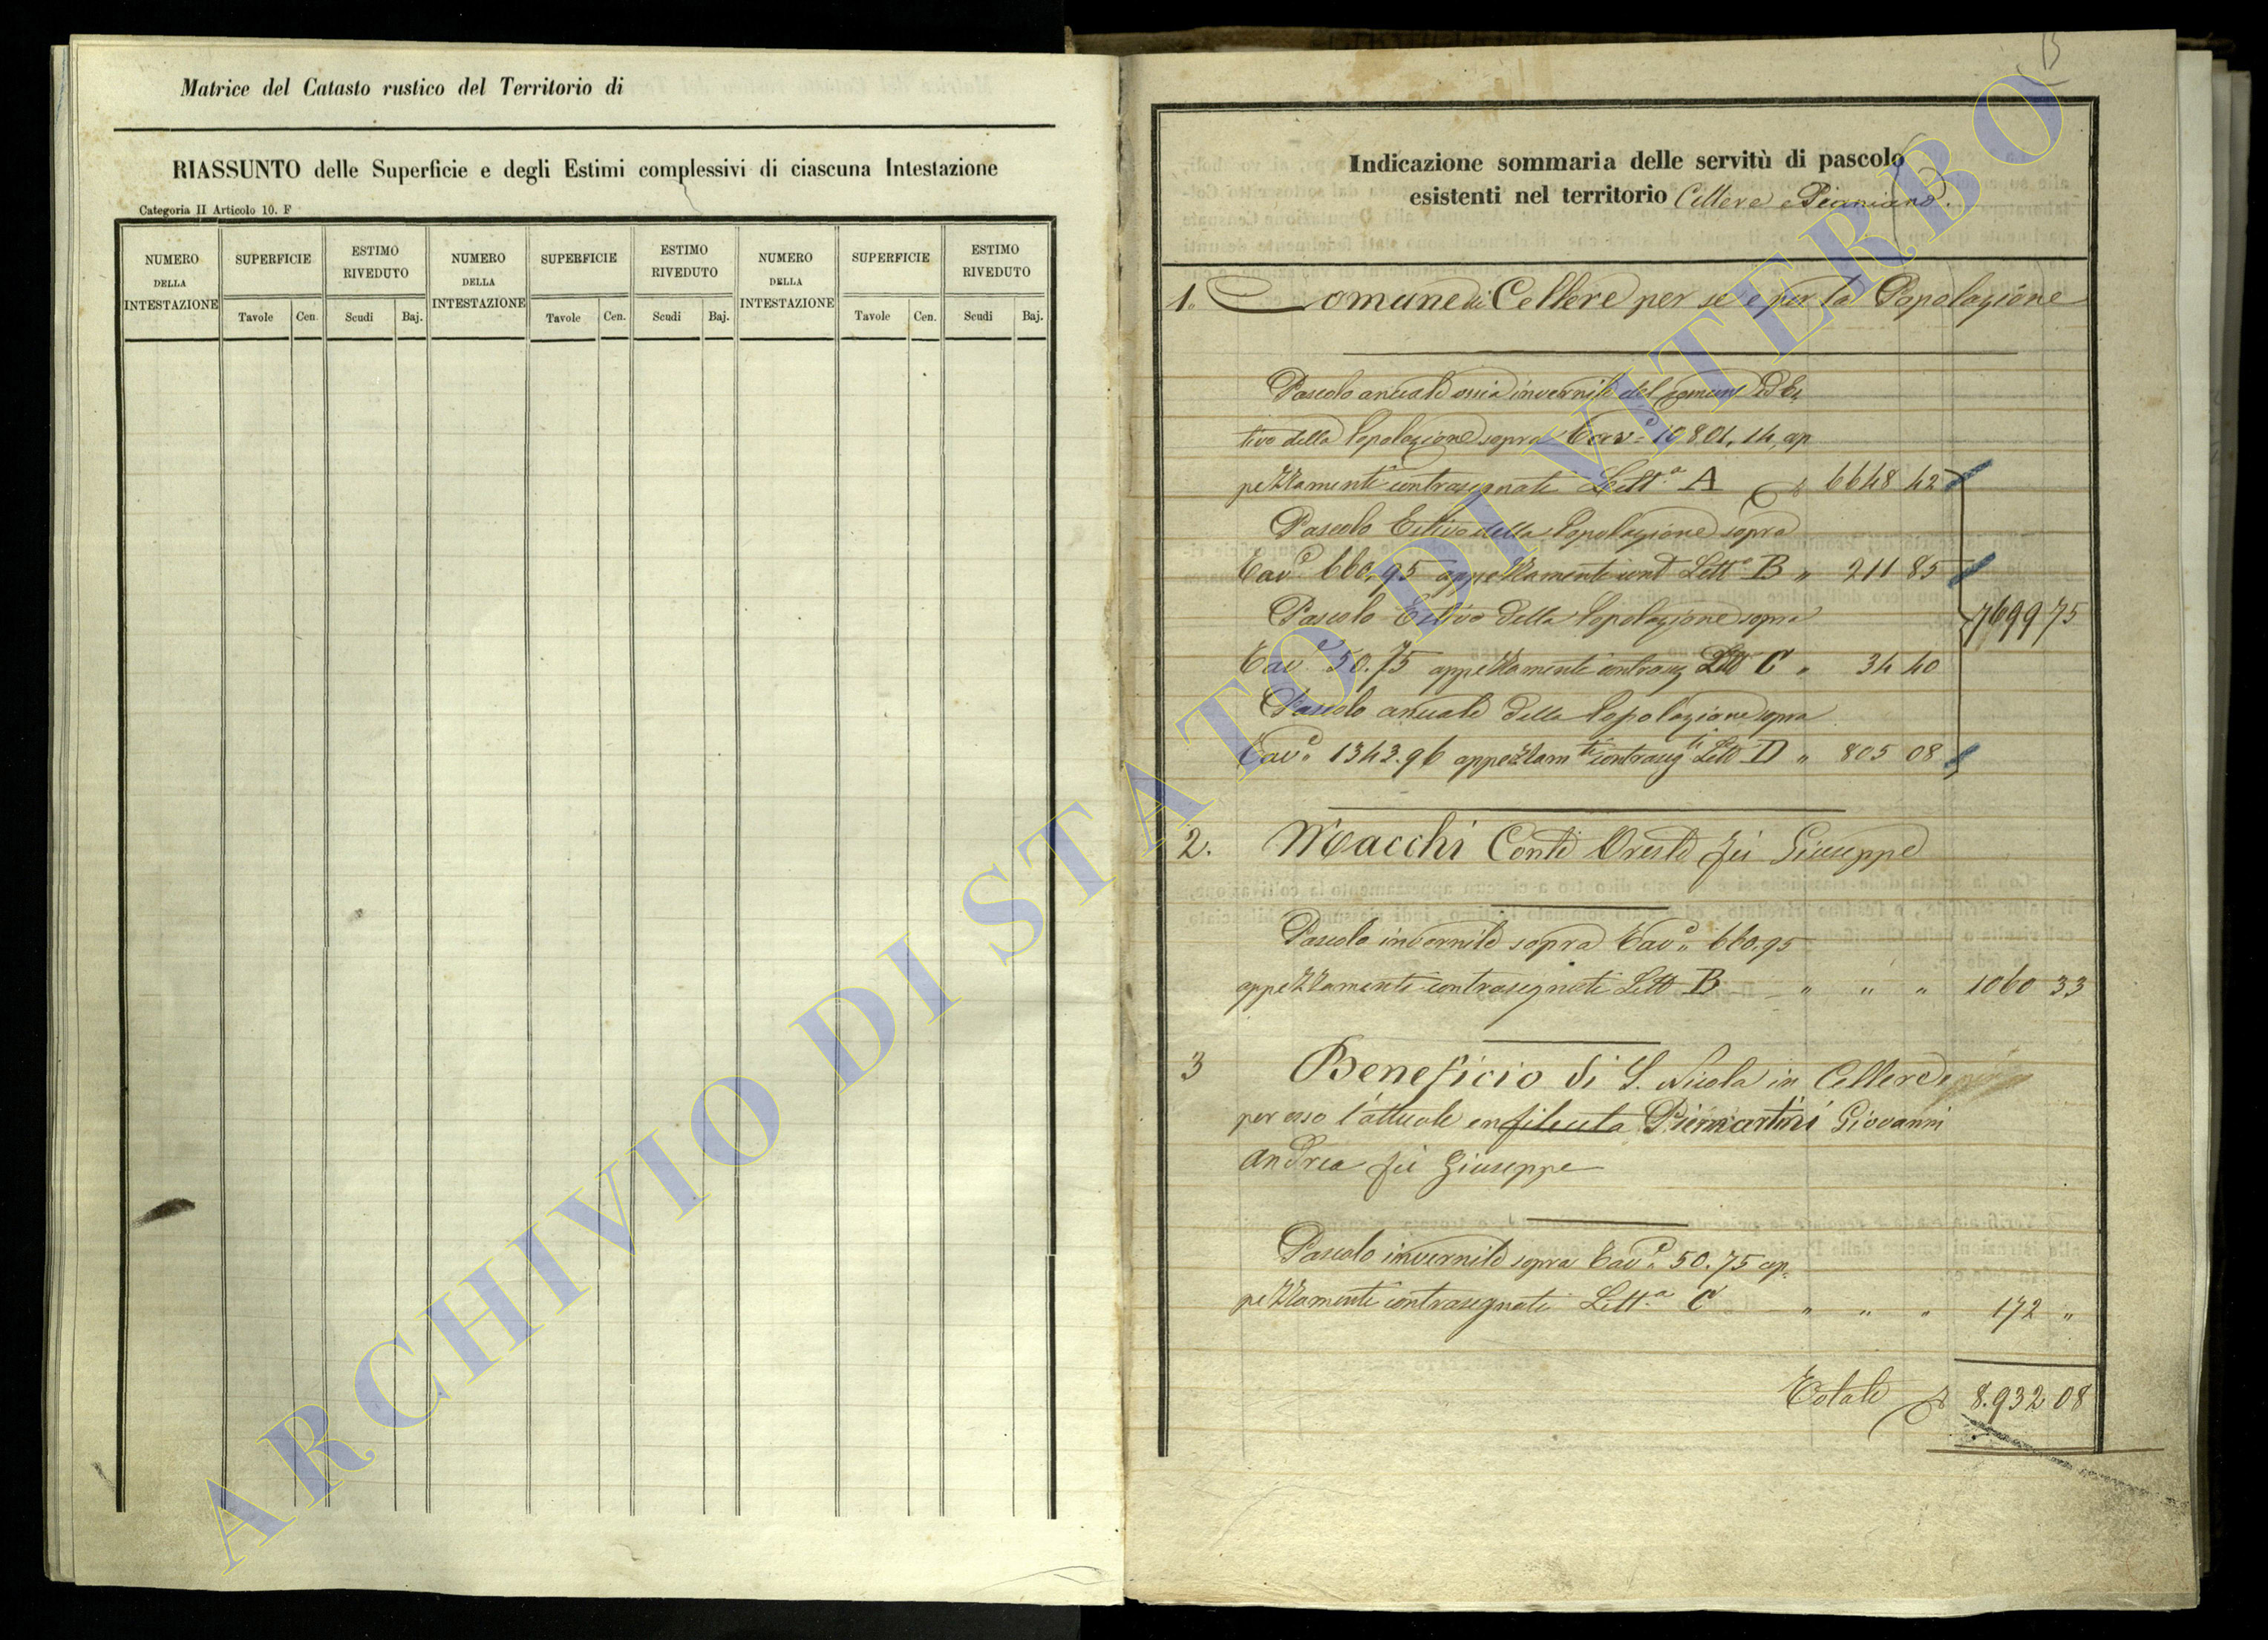 Matrice del Catasto rustico del Territorio di
RIASSUNTO delle Superficie e degli Estimi complessivi di ciascuna Intestazione
Categoria II Articolo 10. F
NUMERO DELLA INTESTAZIONE SUPERFICIE ESTIMO RIVEDUTO NUMERO DELLA INTESTAZIONE SUPERFICIE ESTIMO RIVEDUTO NUMERO DELLA INTESTAZIONE SUPERFICIE ESTIMO RIVEDUTO
Tavole Cen. Scudi Baj. Tavole Cen. Scudi Baj. Tavole Cen. Scudi Baj.
Indicazione sommaria delle servitù di pascolo
esistenti nel territorio Cellere e Pianiano.
1. Comune di Cellere per se e per la Popolazione
Pascolo annuale ossia invernile del comune ed Es
tivo della Popolazione sopra Tav.e 10801,14, ap
pezzamenti contrasegnati Lett.a A 6648 42
Pascolo Estivo della Popolazione sopra
Tav.e 660,95 appezzamenti cont Lett.a B " 211 85
Pascolo Estivo della Popolazione sopra
7699 75
Tav.e 50.75 appezzamenti contraseg Lett C " 34 40
Pascolo annuale della Popolazione sopra
Tav.e 1343.96 appezzam.ti contraseg.ti Lett D " 805 08
2. Macchi Conte Oreste fu Giuseppe
Pascolo invernile sopra Tav.e 660,95
appezzamenti contrasegnati Lett B " " " 1060 33
3 Beneficio di S. Nicola in Cellere e
per esso l'attuale enfiteuta Piermartini Giovanni
Andrea fu Giuseppe
Pascolo invernile sopra Tav.e 50.75 ap=
pezzamenti contrasegnati Lett.a C " " " 172 "
Totale 8.932 08
ARCHIVIO DI STATO DI VITERBO